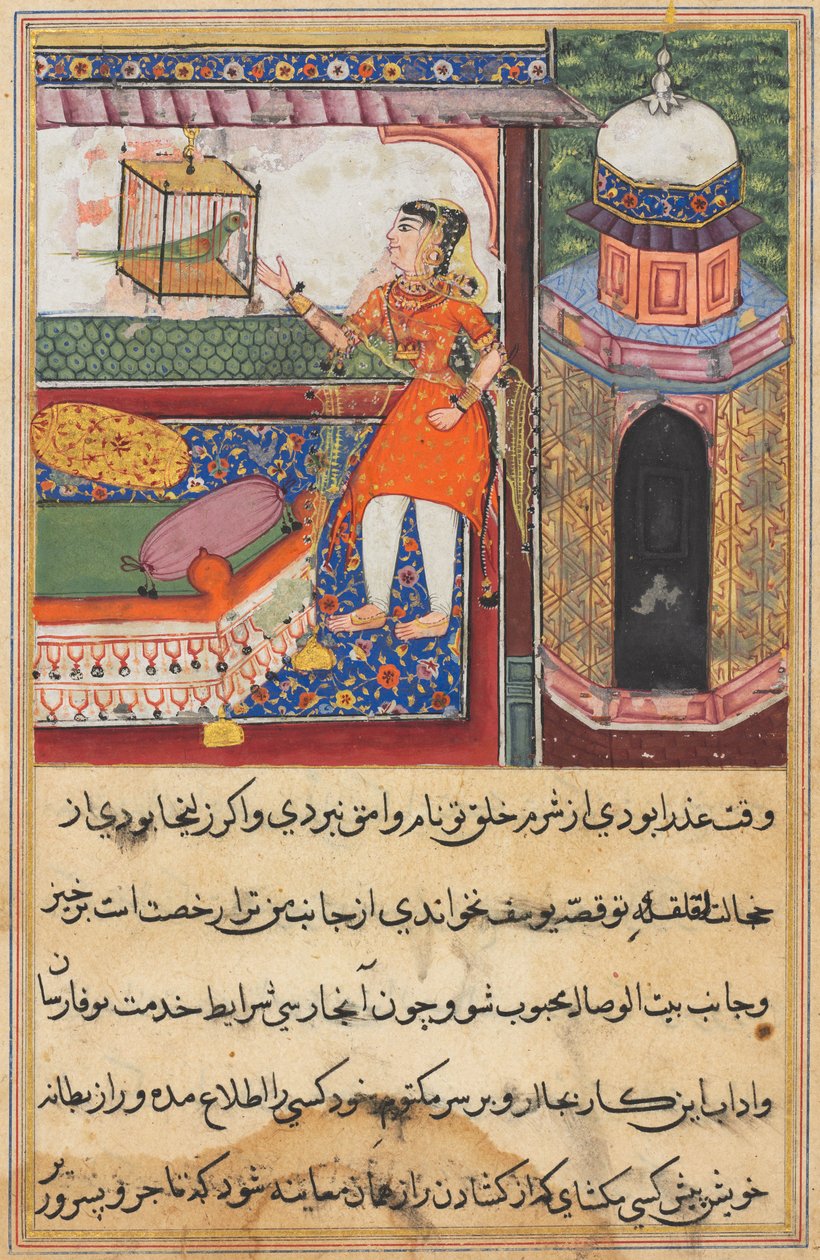 وقت عذرا بودي از شرم خلق تو نام وامق نبردي واكر زليخا بودي از
خجالت قلقلهٔ تو قصّه يوسف نخواندي از جانب من ترا رخصت است برخيز
وجانب بيت الوصال محبوب شو و چون آنجا رسي شرايط خدمت بوفا رسان
واداب اين كار بجا ار و بر سر مكتوم خود كسي را اطلاع مده و راز بطانه
خويش پيش كسي مكشاي كه از كشادن راز همان معاينه شود كه تاجر و پسر را بر